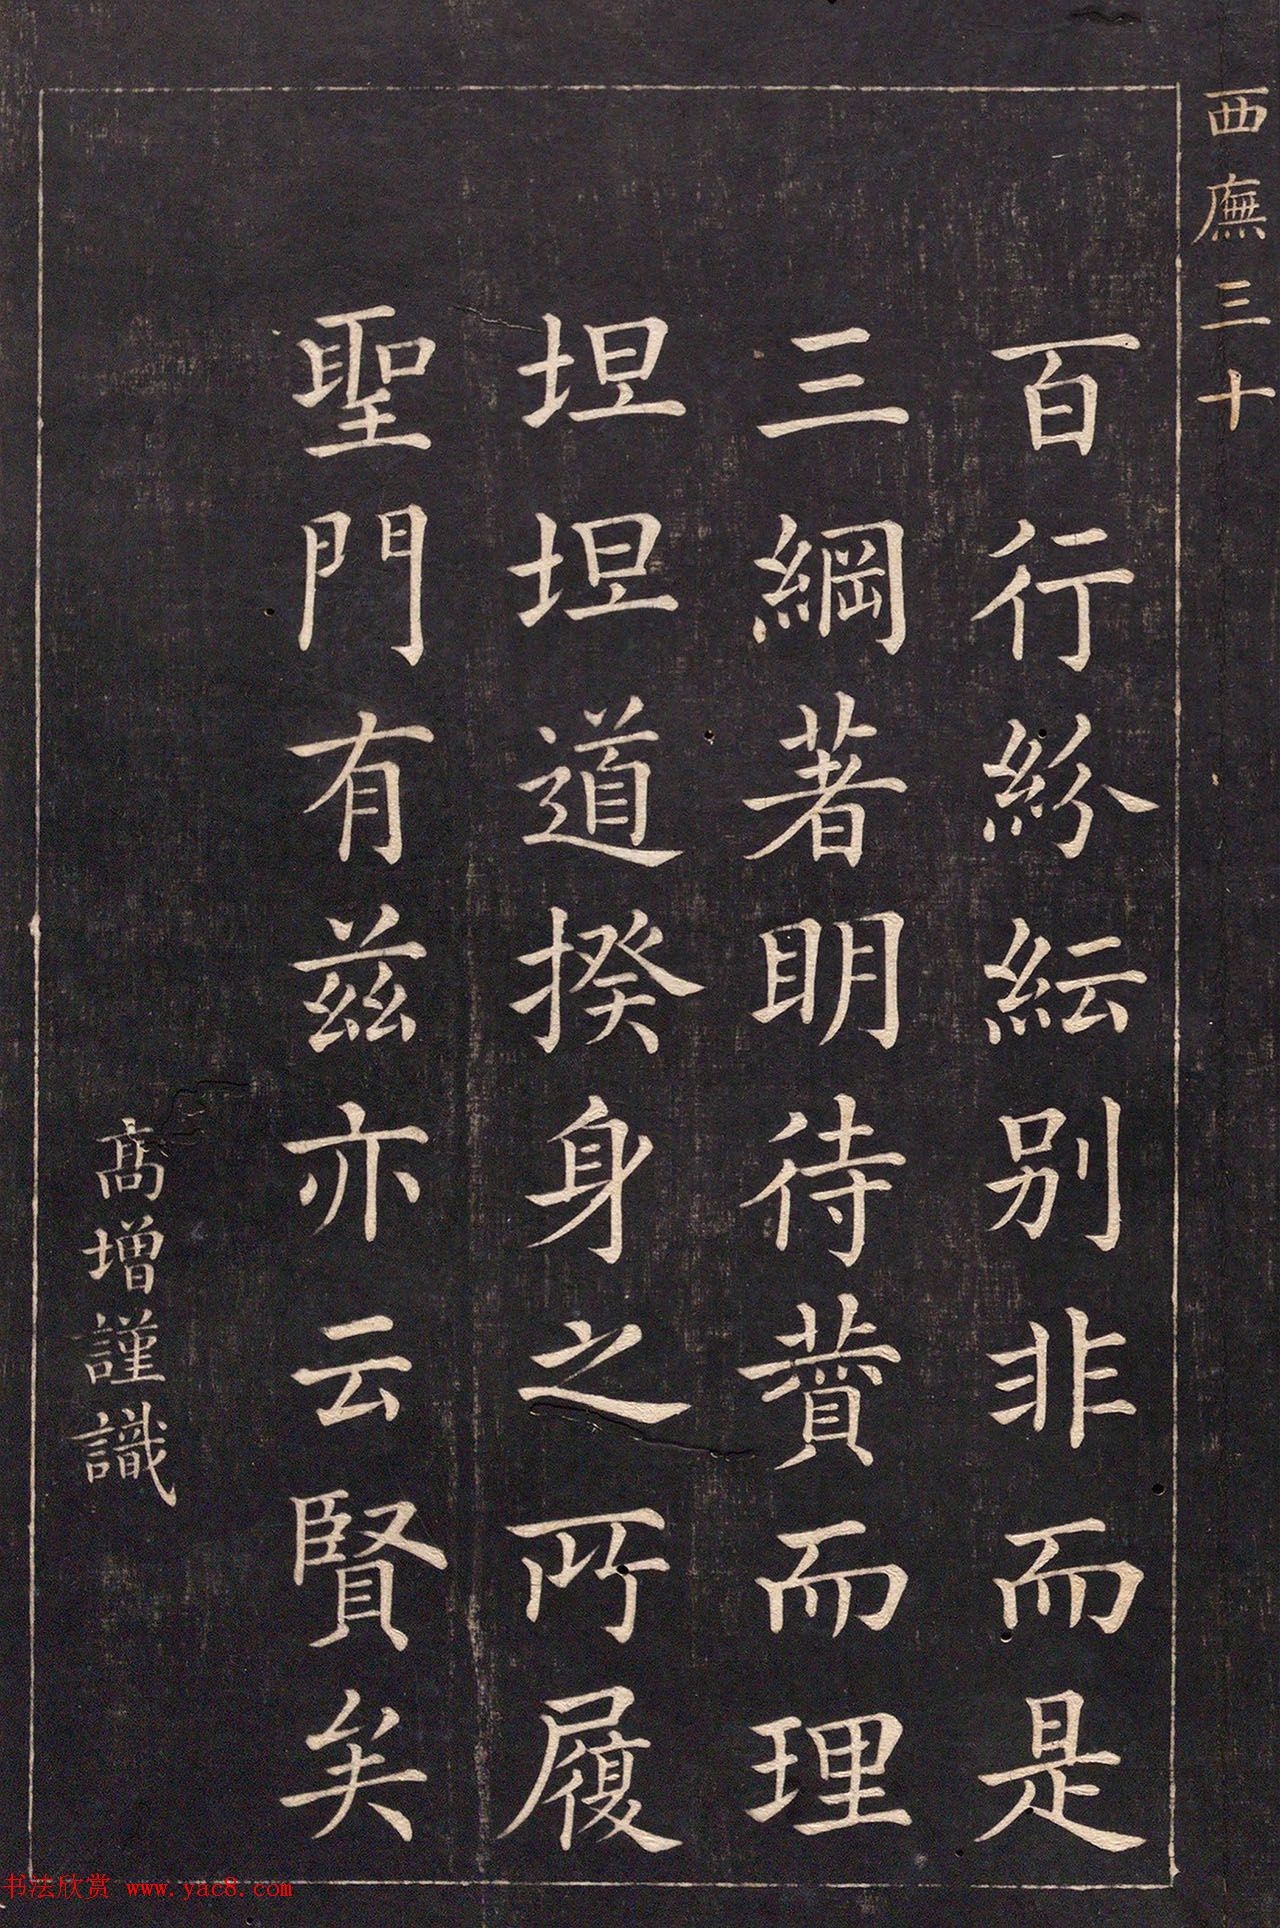 西廡三十
百行紛紜别非而是
三綱著明待蕡而理
坦坦道揆身之所履
聖門有茲亦云賢矣
高增謹識
书法欣赏 www.yac8.com